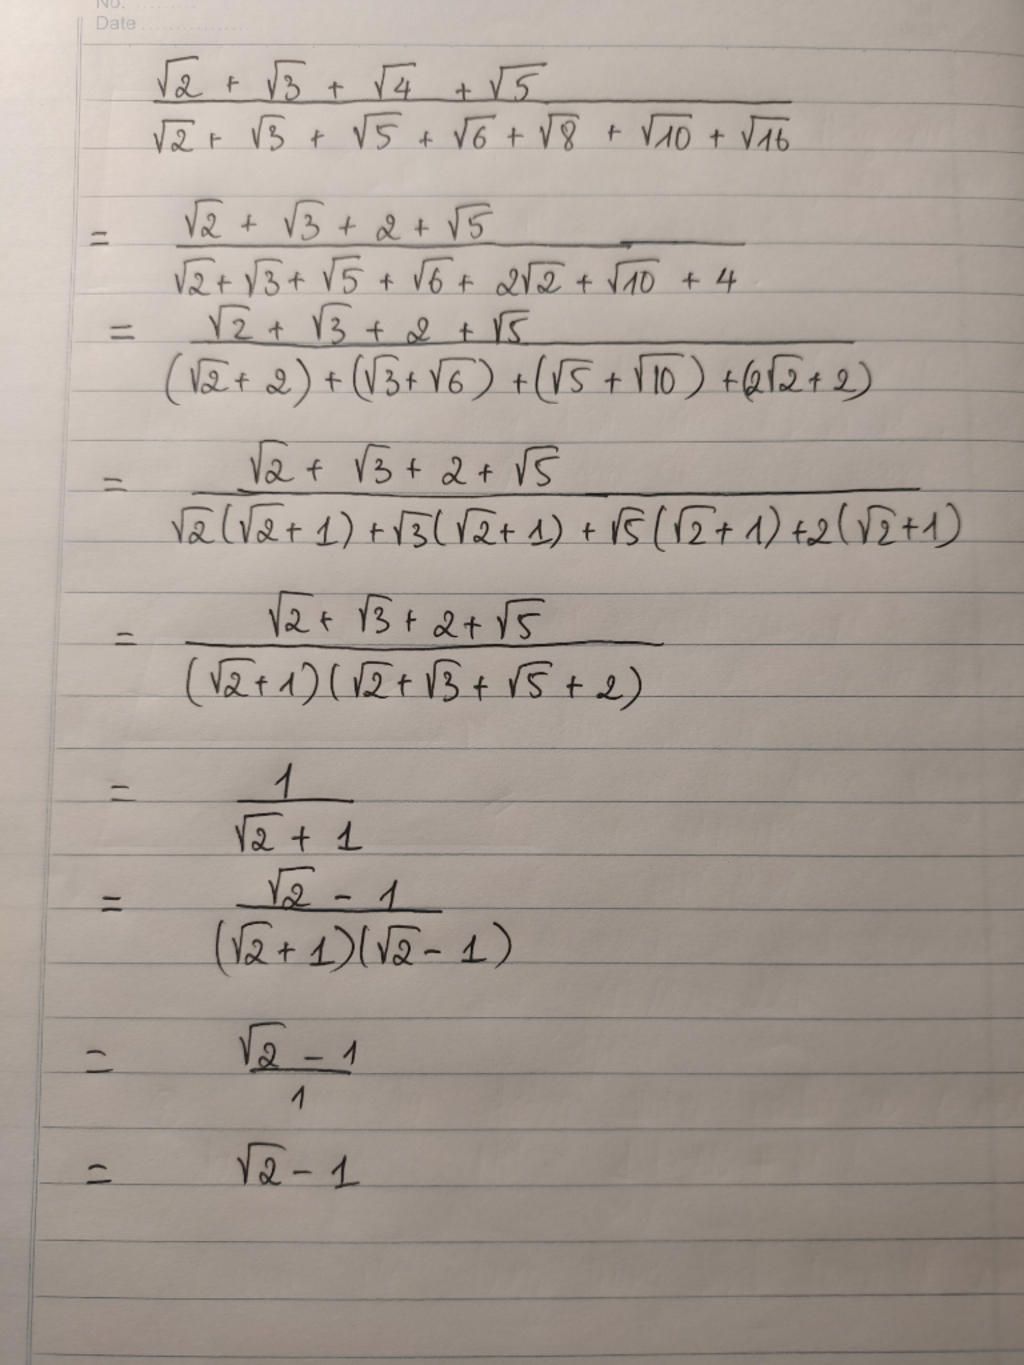 No. ..........
Date ................
√2 + √3 + √4 + √5
√2 + √3 + √5 + √6 + √8 + √10 + √16
= √2 + √3 + 2 + √5
√2 + √3 + √5 + √6 + 2√2 + √10 + 4
= √2 + √3 + 2 + √5
(√2 + 2) + (√3 + √6) + (√5 + √10) + (2√2 + 2)
= √2 + √3 + 2 + √5
√2(√2 + 1) + √3(√2 + 1) + √5(√2 + 1) + 2(√2 + 1)
= √2 + √3 + 2 + √5
(√2 + 1)(√2 + √3 + √5 + 2)
= 1
√2 + 1
= √2 - 1
(√2 + 1)(√2 - 1)
= √2 - 1
1
= √2 - 1